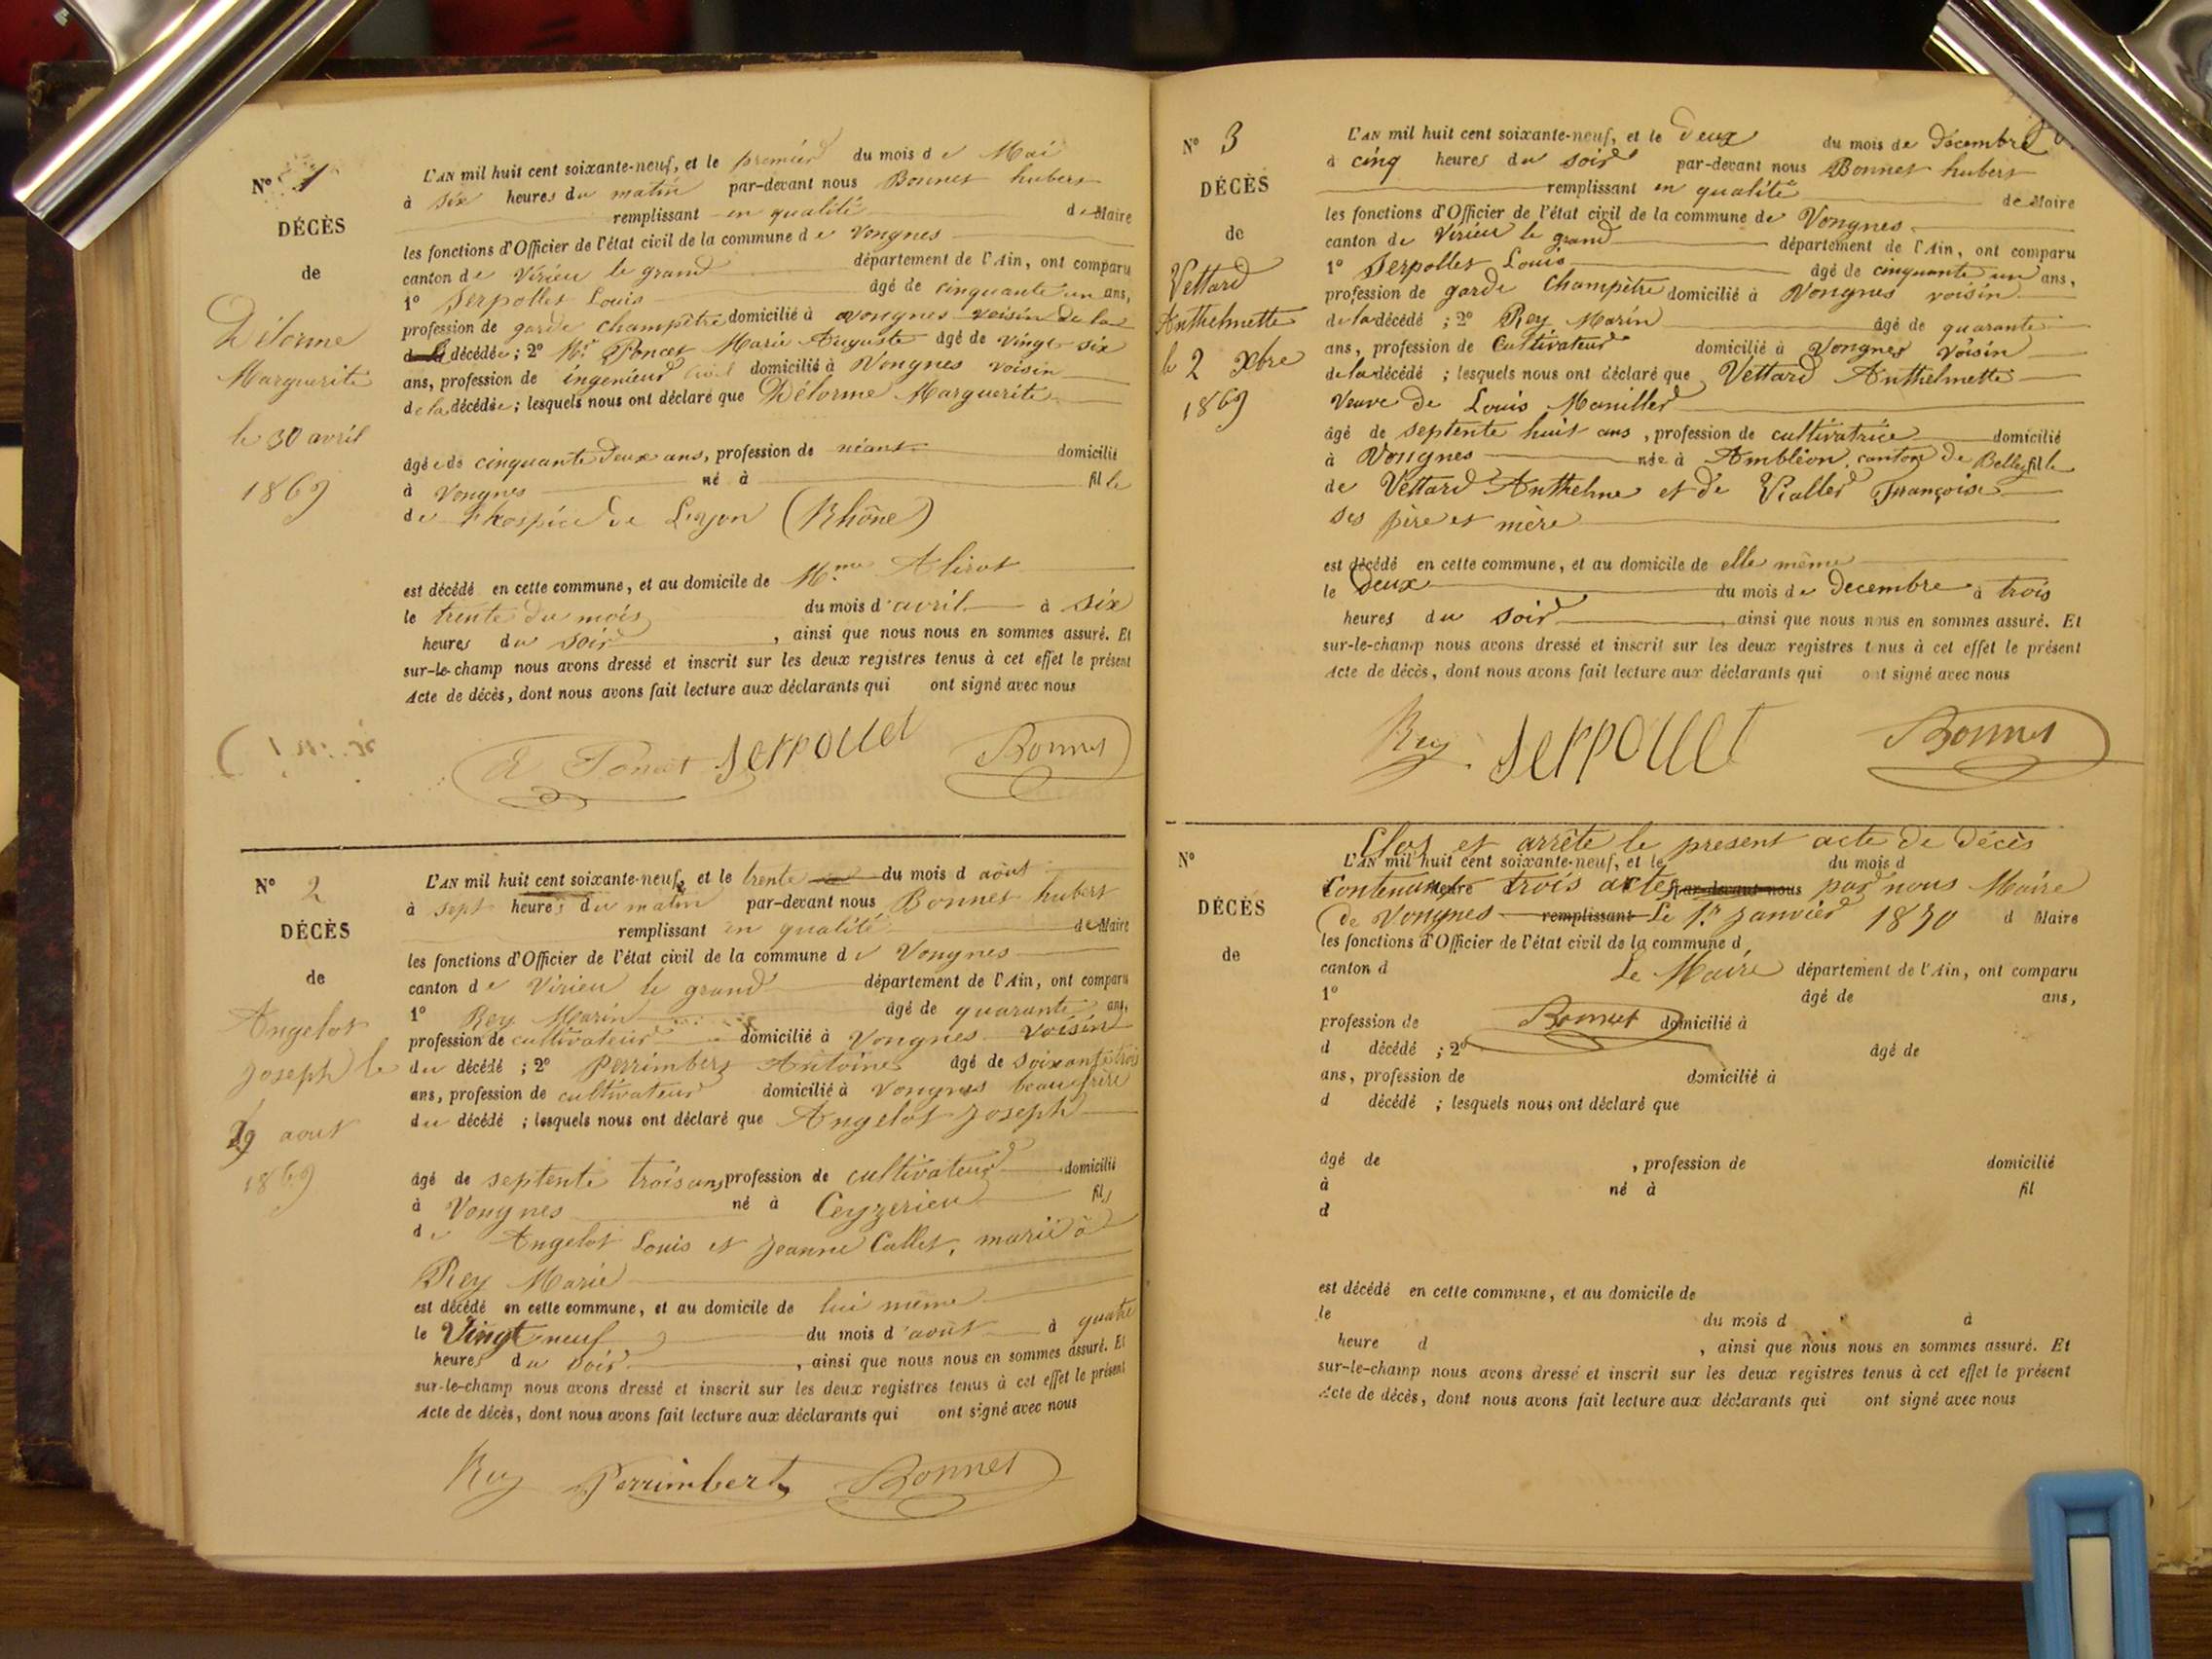 N° 1
DÉCÈS
de
Délorme
Marguerite
le 30 avril
1869
L'AN mil huit cent soixante-neuf, et le premier du mois de Mai
à six heures du matin par-devant nous Bonnet hubert
remplissant en qualité de Maire
les fonctions d'Officier de l'état civil de la commune de Vongnes
canton de Virieu le grand département de l'Ain, ont comparu
1° Serpollet Louis âgé de cinquante un ans,
profession de garde champêtre domicilié à Vongnes voisin de la
décédée ; 2° Mr Poncet Marie Auguste âgé de vingt six
ans, profession de ingenieur civil domicilié à Vongnes voisin
de la décédée ; lesquels nous ont déclaré que Délorme Marguerite
âgée de cinquante deux ans, profession de néant domicilié
à Vongnes né à fille
de l'hospice de Lyon (Rhône)
est décédé en cette commune, et au domicile de Mme Alirot
le trente du mois du mois d'avril à six
heures du soir , ainsi que nous nous en sommes assuré. Et
sur-le-champ nous avons dressé et inscrit sur les deux registres tenus à cet effet le présent
Acte de décès, dont nous avons fait lecture aux déclarants qui ont signé avec nous
A Poncet Serpollet Bonnet
N° 2
DÉCÈS
de
Angelot
Joseph le
29 aout
1869
L'AN mil huit cent soixante-neuf, et le trente du mois d août
à sept heures du matin par-devant nous Bonnet hubert
remplissant en qualité de Maire
les fonctions d'Officier de l'état civil de la commune de Vongnes
canton de Virieu le grand département de l'Ain, ont comparu
1° Rey Marin âgé de quarante ans,
profession de cultivateur domicilié à Vongnes voisin
du décédé ; 2° Perrimbert Antoine âgé de soixante trois
ans, profession de cultivateur domicilié à Vongnes beau frère
du décédé ; lesquels nous ont déclaré que Angelot Joseph
âgé de septente trois ans, profession de cultivateur domicilié
à Vongnes né à Ceyzerieu fils
de Angelot Louis et Jeanne Callet, marié à
Rey Marie
est décédé en cette commune, et au domicile de lui même
le Vingt neuf du mois d'août à quatre
heures du soir , ainsi que nous nous en sommes assuré. Et
sur-le-champ nous avons dressé et inscrit sur les deux registres tenus à cet effet le présent
Acte de décès, dont nous avons fait lecture aux déclarants qui ont signé avec nous
Rey Perrimbert Bonnet
N° 3
DÉCÈS
de
Vettard
Anthelmette
le 2 Xbre
1869
L'AN mil huit cent soixante-neuf, et le deux du mois de Décembre
à cinq heures du soir par-devant nous Bonnet hubert
remplissant en qualité de Maire
les fonctions d'Officier de l'état civil de la commune de Vongnes
canton de Virieu le grand département de l'Ain, ont comparu
1° Serpollet Louis âgé de cinquante un ans,
profession de garde Champêtre domicilié à Vongnes voisin
de la décédé ; 2° Rey Marin âgé de quarante
ans, profession de Cultivateur domicilié à Vongnes voisin
de la décédé ; lesquels nous ont déclaré que Vettard Anthelmette
Veuve de Louis Manillier
âgé de septente huit ans , profession de cultivatrice domicilié
à Vongnes née à Ambléon canton de Belley fille
de Vettard Anthelme et de Viallet Françoise
ses père et mère
est décédé en cette commune, et au domicile de elle même
le deux du mois de decembre à trois
heures du soir , ainsi que nous nous en sommes assuré. Et
sur-le-champ nous avons dressé et inscrit sur les deux registres tenus à cet effet le présent
Acte de décès, dont nous avons fait lecture aux déclarants qui ont signé avec nous
Rey Serpollet Bonnet
Clos et arrête le present acte de décès
N° L'AN mil huit cent soixante-neuf, et le du mois d
Contenant heure trois actes par-devant nous par nous Maire
DÉCÈS
de
de Vongnes remplissant Le 1er Janvier 1870 d Maire
les fonctions d'Officier de l'état civil de la commune d
canton d Le Maire département de l'Ain, ont comparu
1° âgé de ans,
profession de Bonnet domicilié à
d décédé ; 2° âgé de
ans, profession de domicilié à
d décédé ; lesquels nous ont déclaré que
âgé de , profession de domicilié
à né à fil
d
est décédé en cette commune, et au domicile de
le du mois d à
heure d , ainsi que nous nous en sommes assuré. Et
sur-le-champ nous avons dressé et inscrit sur les deux registres tenus à cet effet le présent
Acte de décès, dont nous avons fait lecture aux déclarants qui ont signé avec nous